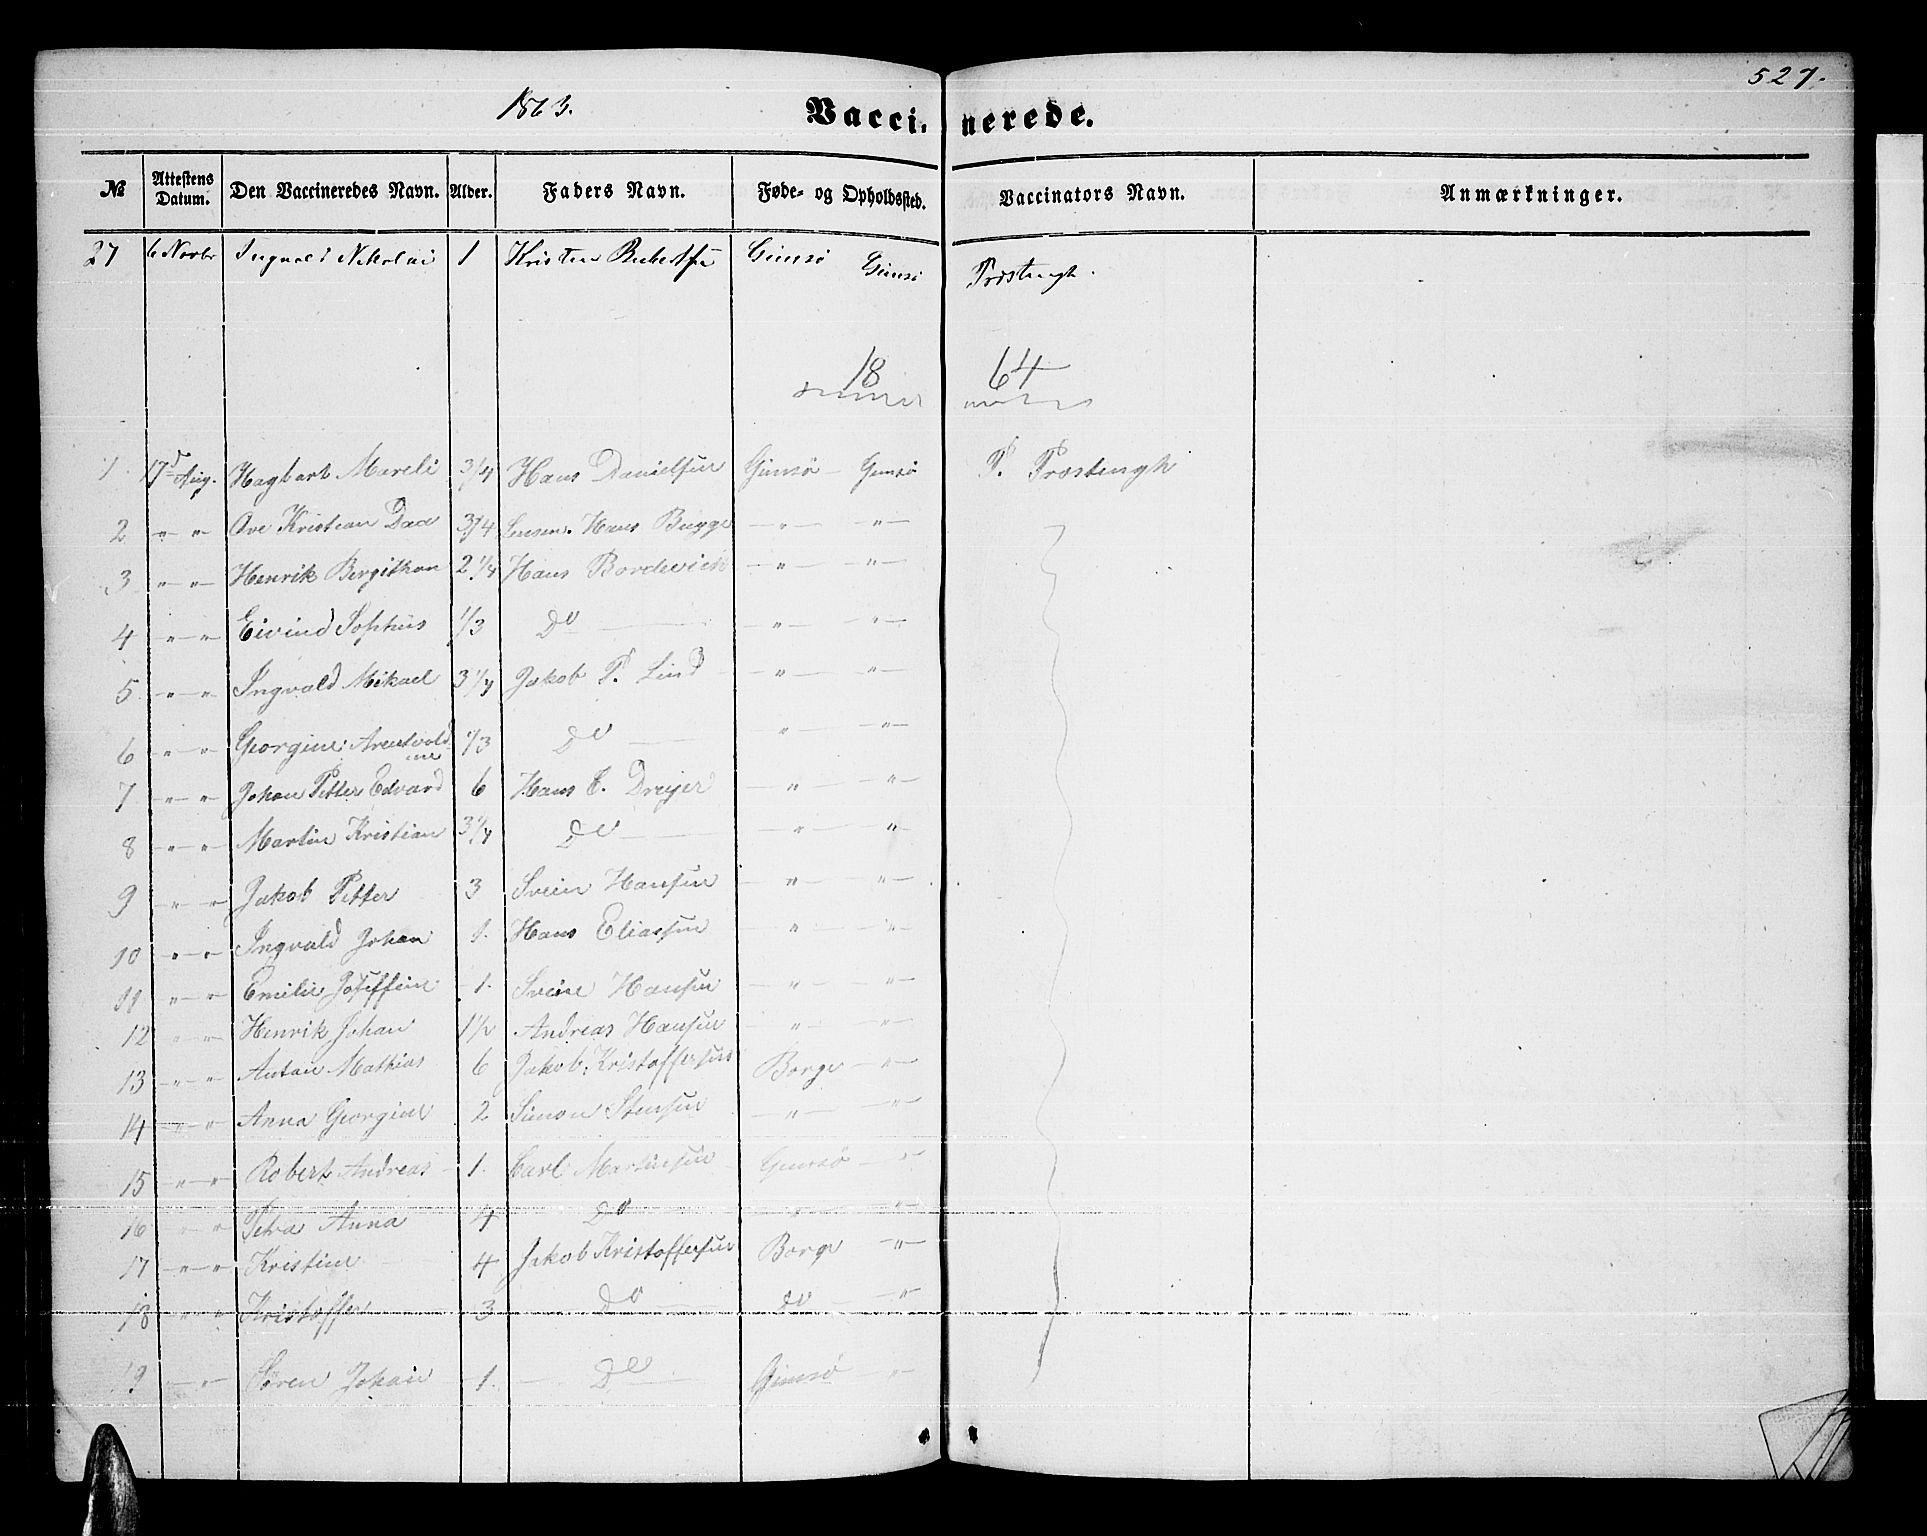 527.
1863. Vaccinerede.
№ Attestens Datum. Den Vaccineredes Navn. Alder. Faders Navn. Føde- og Opholdssted. Vaccinators Navn. Anmærkninger.
27 6 Novbr Ingvald Nikolai 1 Kristen Gimsø Gimsø Trostengh.
18 64
1. 17d Aug. Hagbart Mareli 3/4 Hans Danielsen Gimsø — Gimsø P. Trostengh
2 — " — " Ove Kristian Daa 3/4 Lensm. Hans Bugge — " — — " —
3 — " — " Henrik Bergithon 2 1/4 Hans — " — — " —
4 — " — " Eivind Sophus 1/3 Do — " — — " —
5 — " — " Ingvald Mikael 3 1/4 Jakob P. Lind — " — — " —
6 — " — " Georgine 1/3 Do — " — — " —
7 — " — " Johan Petter Edvard 6 Hans C. Dreyer — " — — " —
8 — " — " Martin Kristian 3 1/4 Do — " — — " —
9 — " — " Jakob Petter 3 Svein Hansen — " — — " —
10 — " — " Ingvald Johan 1. Hans Eliassen — " — — " —
11 — " — " Emilie Joseffine 1. Svein Hansen — " — — " —
12 — " — " Henrik Johan 1 1/2 Andreas Hansen — " — — " —
13 — " — " Anton Mathias 6 Jakob Kristoffersen Borge — " —
14 — " — " Anna Georgine 2 Simon Stensen — " — — " —
15 — " — " Robert Andreas 1. Carl Martinsen Gimsø — " —
16 — " — " Petra Anna 4 Do — " — — " —
17 — " — " Kristine 4 Jakob Kristoffersen Borge — " —
18 — " — " Kristoffer 3 Do do — " —
19 — " — " Søren Johan 1. Do Gimsø — " —